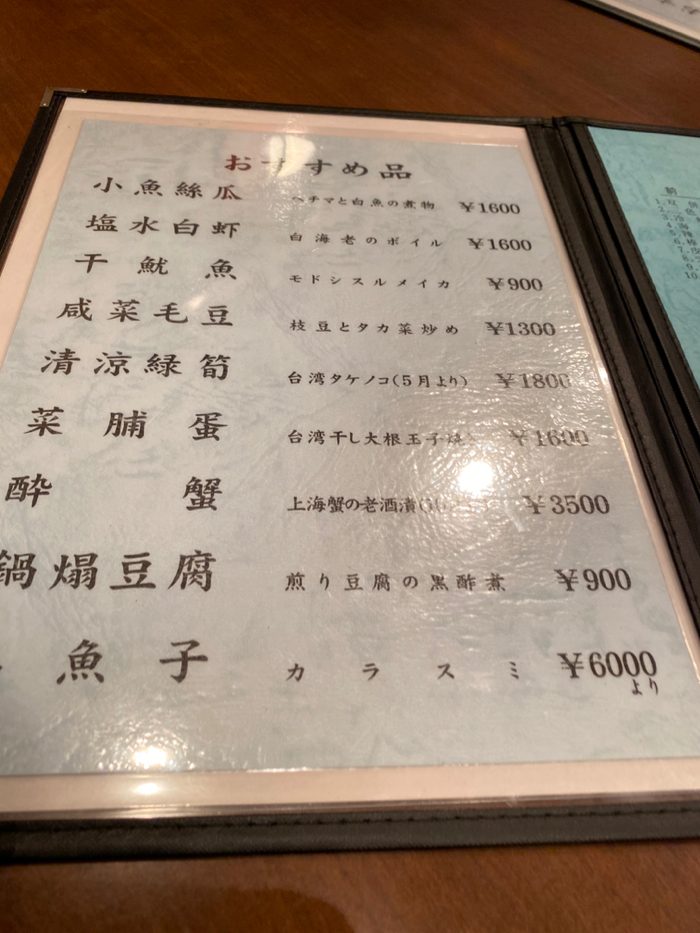 おすすめ品
小魚絲瓜 ヘチマと白魚の煮物 ¥1600
塩水白虾 白海老のボイル ¥1600
干魷魚 モドシスルメイカ ¥900
咸菜毛豆 枝豆とタカ菜炒め ¥1300
清涼緑筍 台湾タケノコ(5月より) ¥1800
菜脯蛋 台湾干し大根玉子焼 ¥1600
酔蟹 上海蟹の老酒漬 ¥3500
鍋塌豆腐 煎り豆腐の黒酢煮 ¥900
魚子 カラスミ ¥6000
より